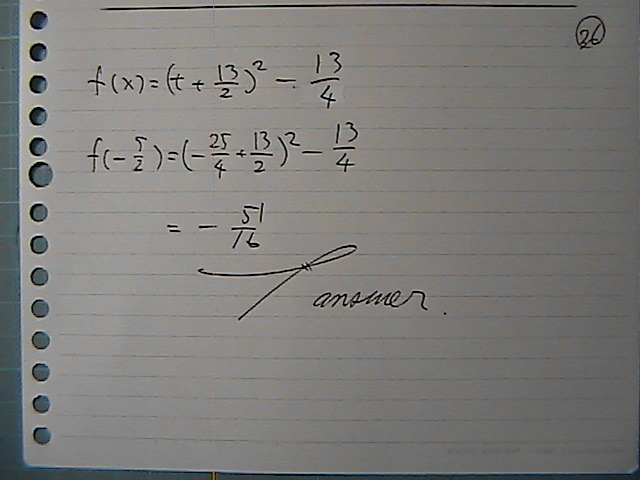 26
f(x)=(t+13/2)²-13/4
f(-5/2)=(-25/4+13/2)²-13/4
=-51/16
answer.